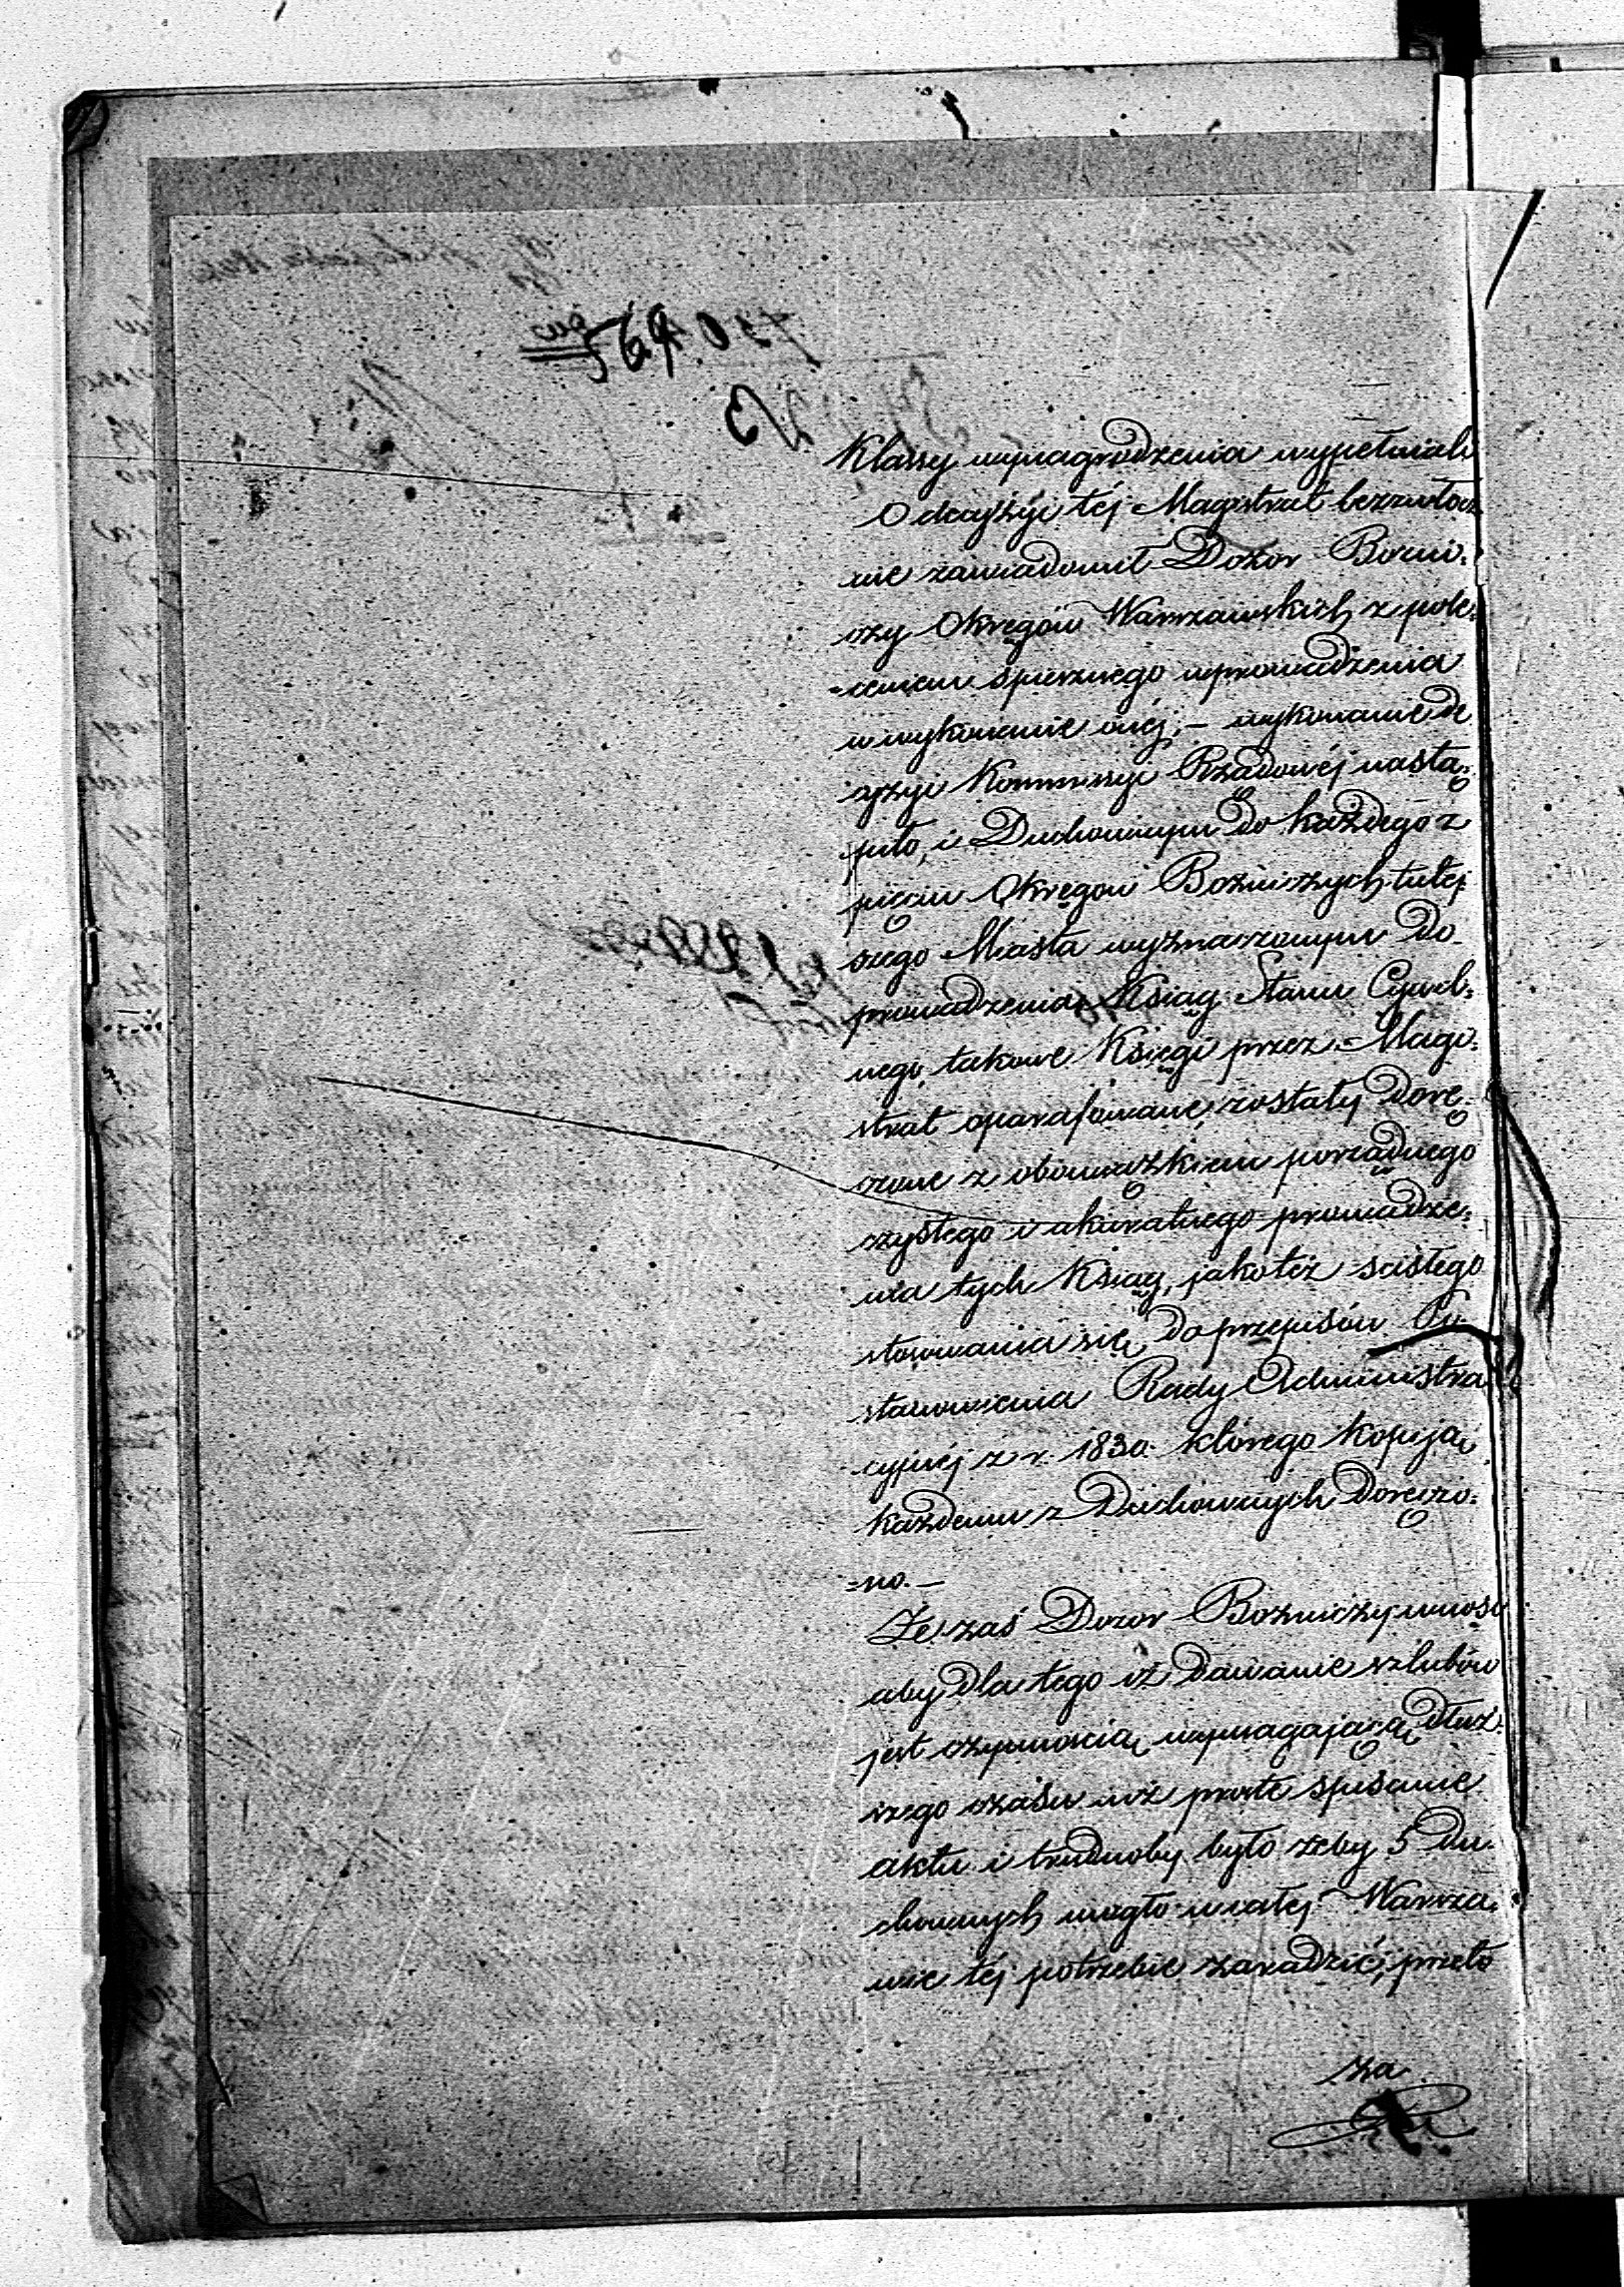 Klassy wynagrodzenia wypełniali
O decyzyi téj Magistrat bezzwłocz
nie zawiadomił Dozor Bożni-
czy Okręgów Warszawskich z pole-
-ceniem śpiesznego wprowadzenia
w wykonanie onéj, – wykonanie de
cyzyi Kommissyi Rządowéj nastą-
piło, i Duchownym do każdego z
pięciu Okręgow Bożniczych tutej
szego Miasta wyznaczonym do
prowadzenia Ksiąg Stanu Cywil-
nego, takowe Księgi przez Magi-
strat oparafowane, zostały dorę-
czone z obowiązkiem porządnego
czystego i akuratnego prowadze-
nia tych Ksiąg, jakotéż scisłego
stosowania się do przepisów Po-
stanowienia Rady Administra
cyjnéj z r. 1830. którego kopiją
każdemu z Duchownych doręczo-
=no.–
Że zaś Dozor Bożniczy wnosi
aby dla tego iż dawanie szlubów
jest czynnością wymagającą dłuż-
szego czasu niż proste spisanie
aktu i trudnoby było żeby 5 du-
chownych mogło w całéj Warsza-
wie téj potrzebie zaradzić, przeto
za